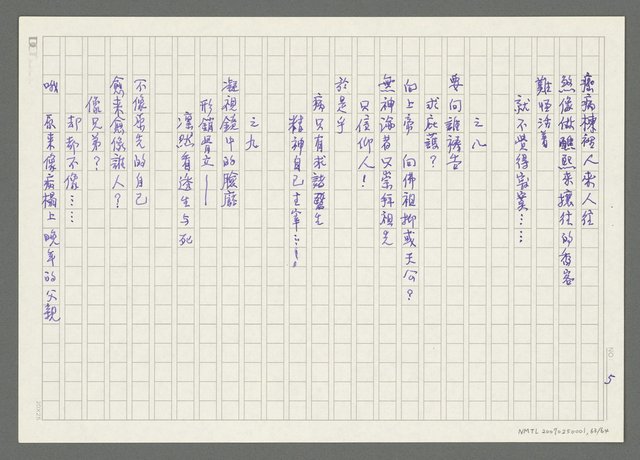 癌病棟裡人來人往
煞像做醮熙來攘往的香客
難怪活着
就不覺得寂寞……
之八
要向誰禱告
求庇護？
向上帝 向佛祖抑或天公？
無神論者又崇拜祖先
只信仰人！
於是乎
病只有求諸醫生
精神自己主宰……！
之九
凝視鏡中的臉龐
形銷骨立——
凜然看透生与死
不像原先的自己
愈來愈像誰人？
像兄弟？
却都不像……
哦 原來像病榻上晚年的父親
NO 5
NMTL 20070250001, 63/64